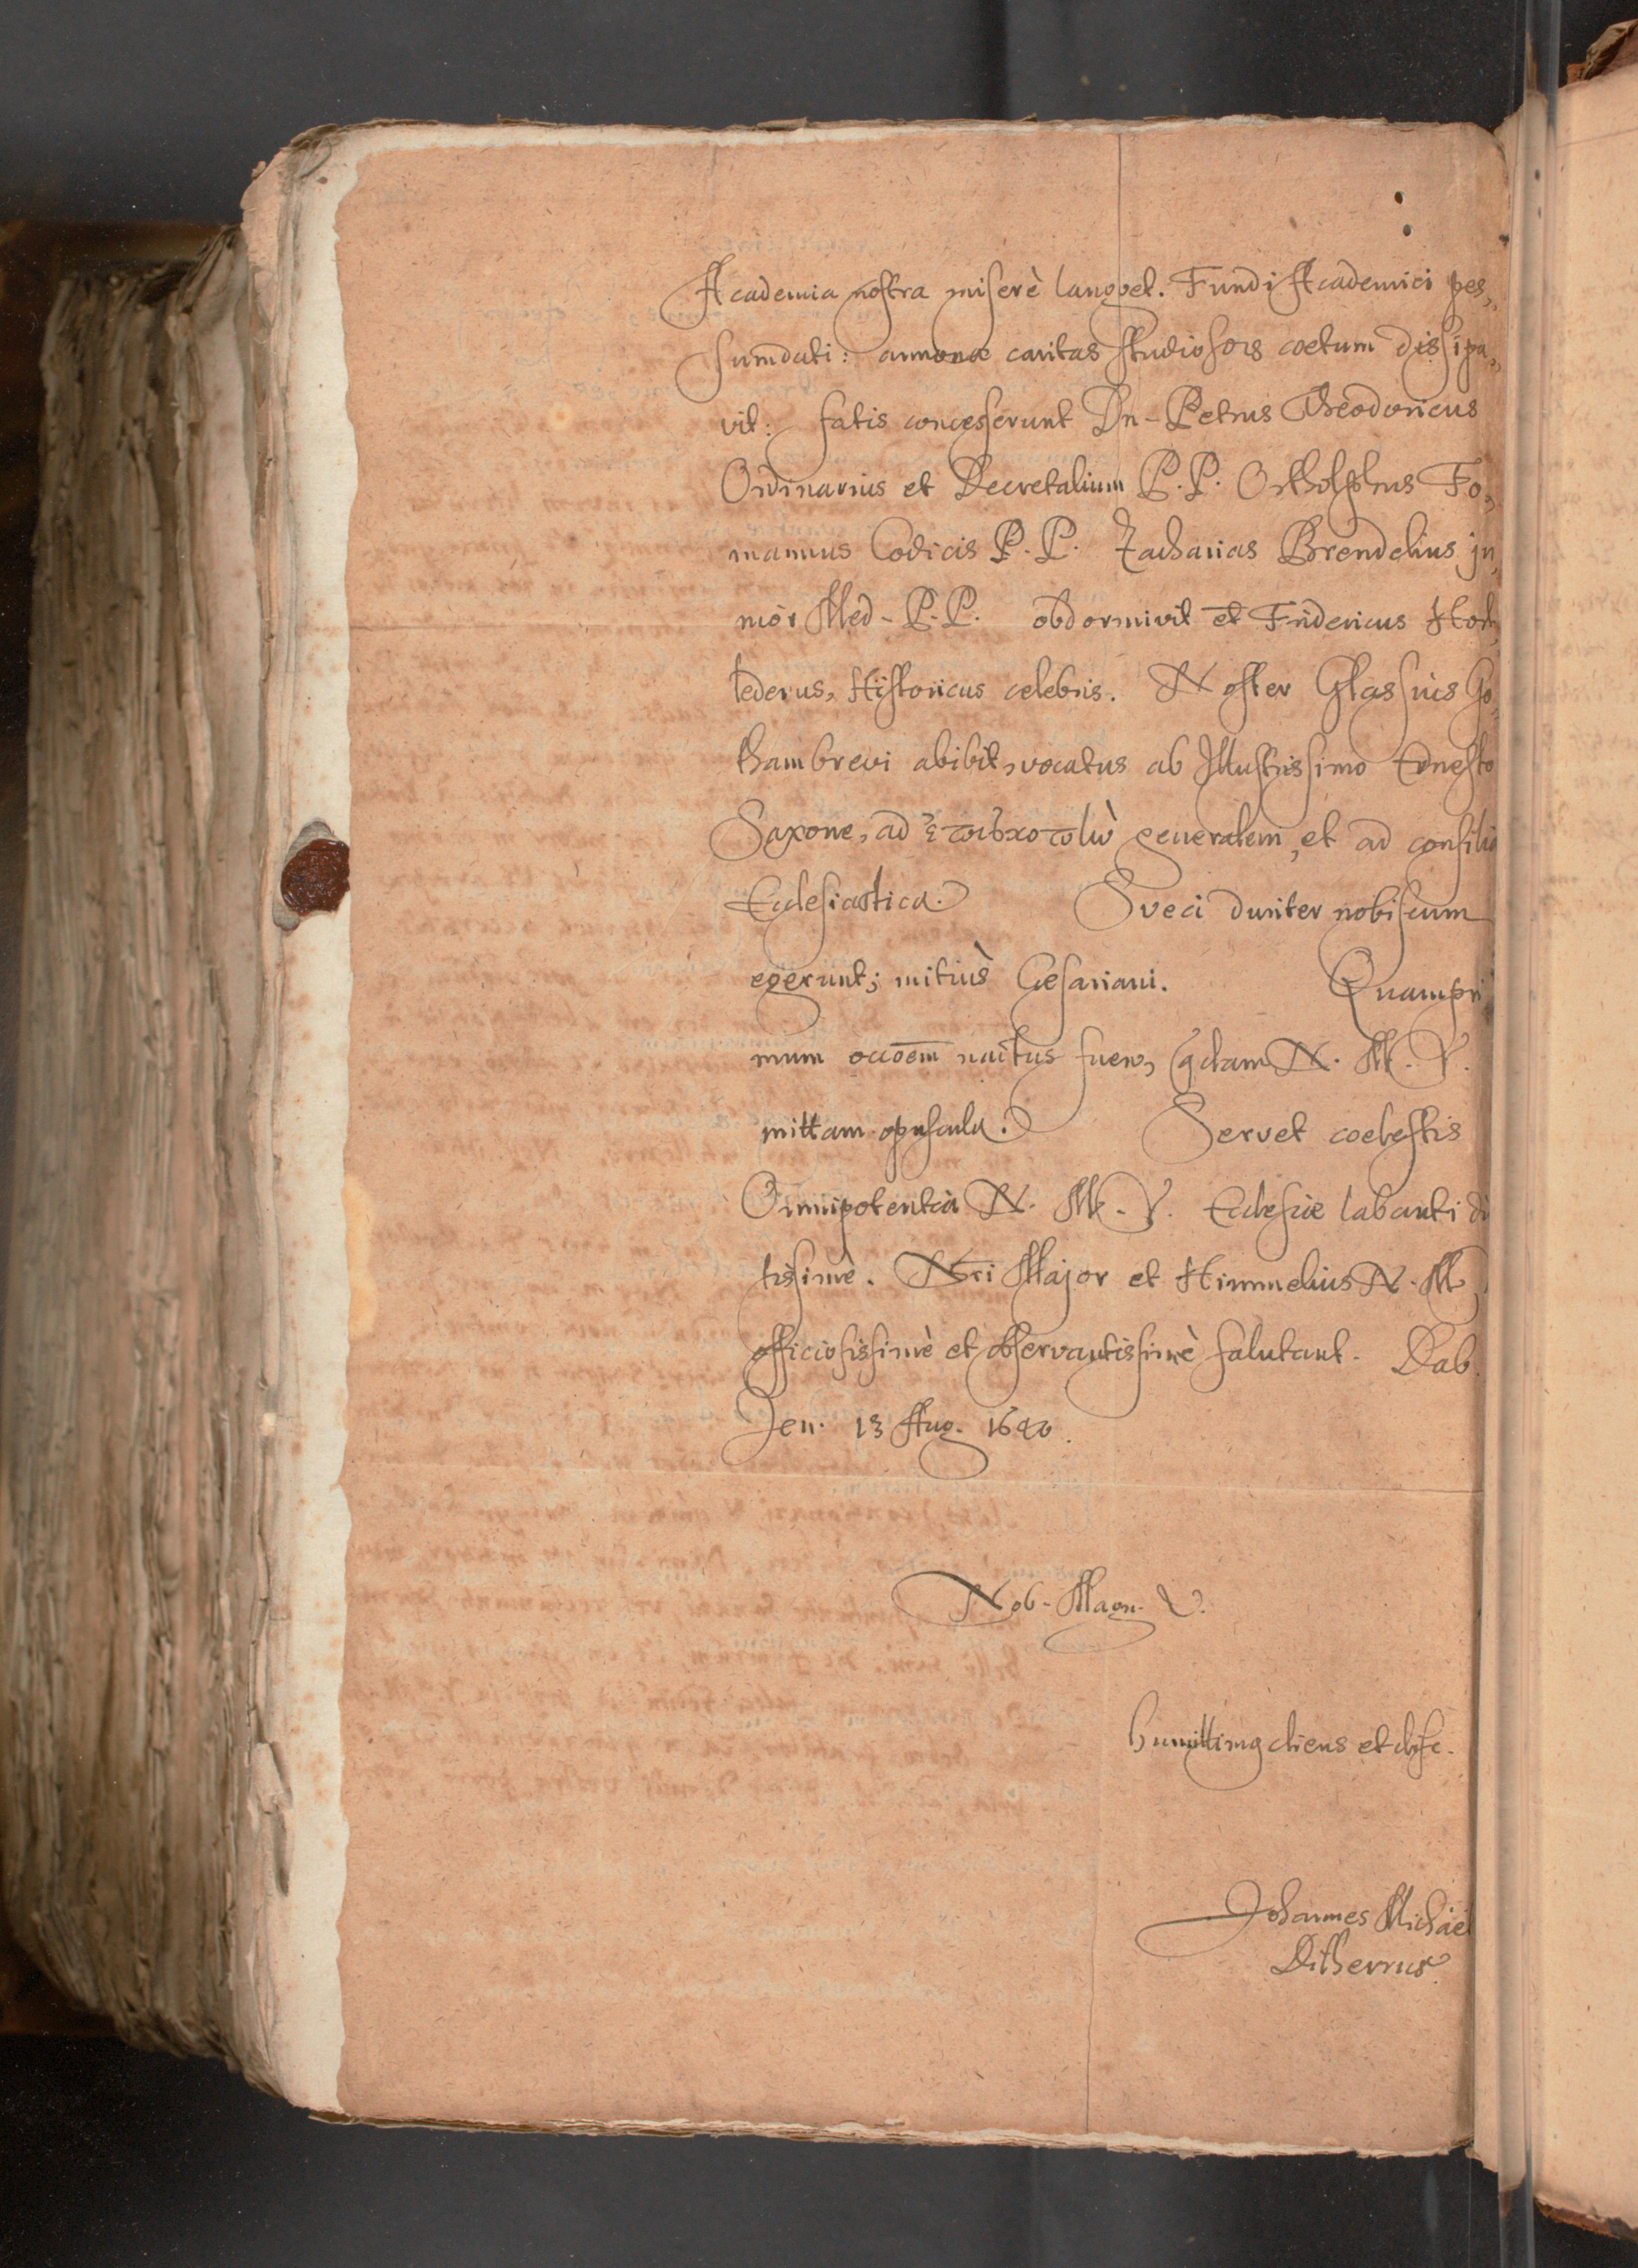 Academia nostra miserè langvet. Fundi Academici pes,
sumdati: annonae caritas studiosor coetum dissipa,
vit: fatis concesserunt Dn. Petrus Theodoricus
Ordinarius et Decretalium P. P. Ortholphus Fo,
mannus Codicis P. P. Zacharias Brendelius ju,
nior Med. P. P. obdormivit et Fridericus Hor,
tederus, Historicus celebris. Noster Glassius Go,
tham brevi abibit, vocatus ab Illustrissimo Ernesto
Saxone, ad generalem, et ad consilia
Ecclesiastica. Sveci duriter nobiscum
egerunt; mitius Cesariani. Quampri
mum occoem nactus fuero, qdam N. M. V.
mittam opuscula. Servet coelestis
Omnipotentia N. M. V. Ecclesiae labanti di
tissimè. Nri Major et Himmelius N. M.
officiosissimè et observantissimè salutant. Dab.
Jen. 13 Aug. 1640.
Nob. Magn. V.
humillimq cliens et
Johannes Michael
Dilherrus.